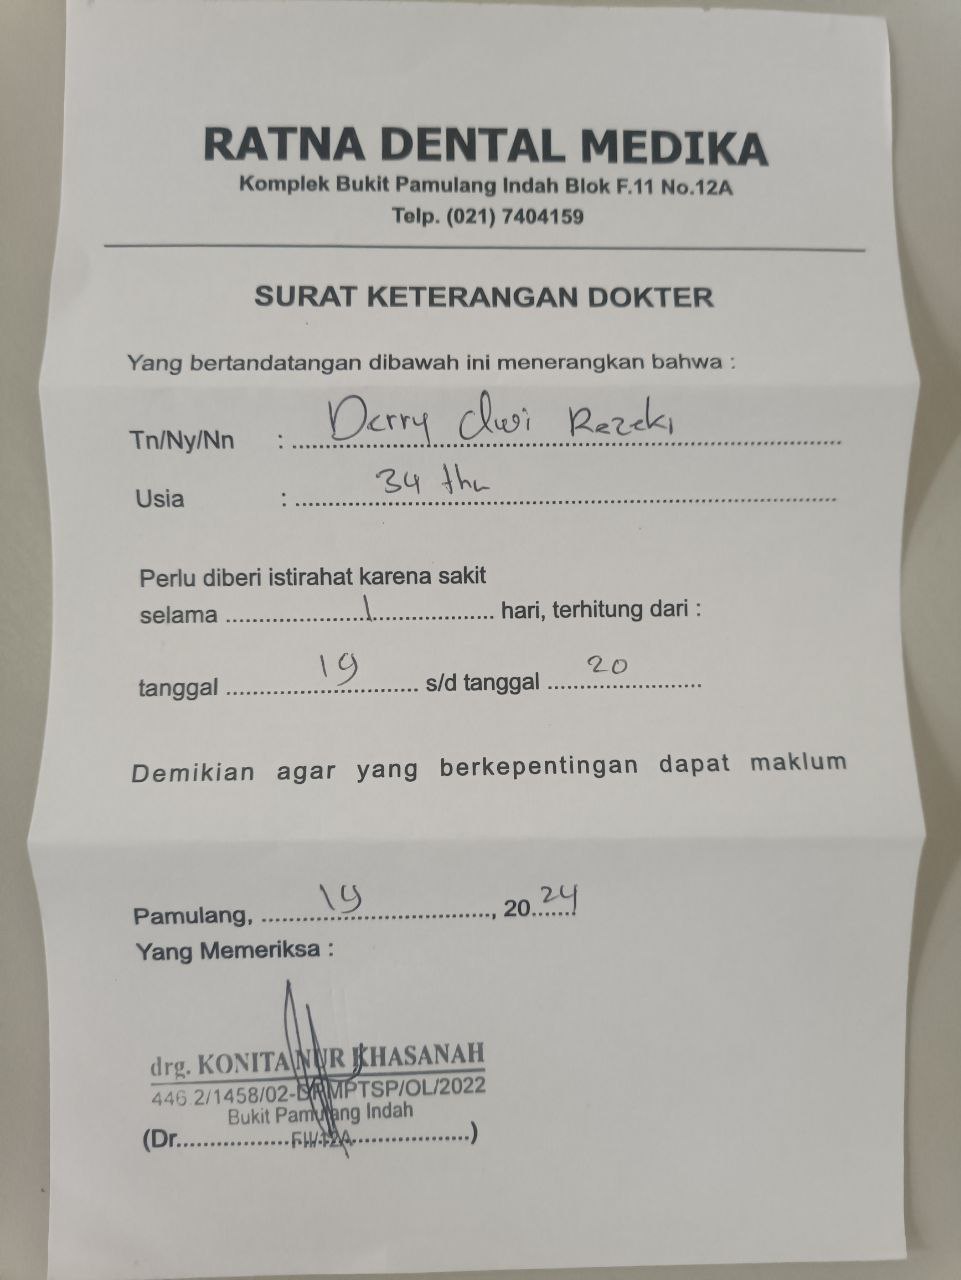 RATNA DENTAL MEDIKA
Komplek Bukit Pamulang Indah Blok F.11 No.12A
Telp. (021) 7404159
SURAT KETERANGAN DOKTER
Yang bertandatangan dibawah ini menerangkan bahwa :
Tn/Ny/Nn : Derry dwi Rezeki
Usia : 34 thn
Perlu diberi istirahat karena sakit
selama 1 hari, terhitung dari :
tanggal 19 s/d tanggal 20
Demikian agar yang berkepentingan dapat maklum
Pamulang, 19, 2024
Yang Memeriksa :
drg. KONITA NUR KHASANAH
446.2/1458/02-DPMPTSP/OL/2022
Bukit Pamulang Indah
(Dr. FII/12A )